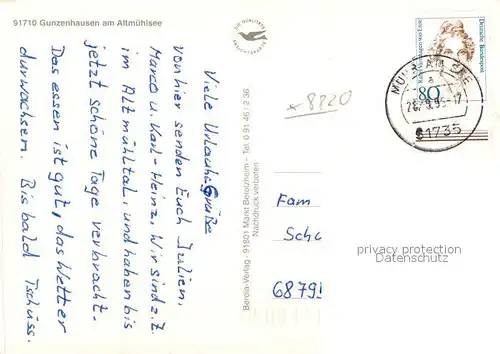 91710 Gunzenhausen am Altmühlsee
Viele Urlaubsgrüße
von hier senden Euch Julien,
Marco u. Karl-Heinz, Wir sind z. Z.
im Altmühltal, und haben bis
jetzt schöne Tage verbracht.
Das essen ist gut, das Wetter
durwachsen. Bis bald Tschüss.
Berola-Verlag · 91801 Markt Berolzheim · Tel. 0 91 46 / 2 36
Nachdruck verboten
x8220
Deutsche Bundespost
80
91735
Fam
Sch
6879
privacy protection
Datenschutz